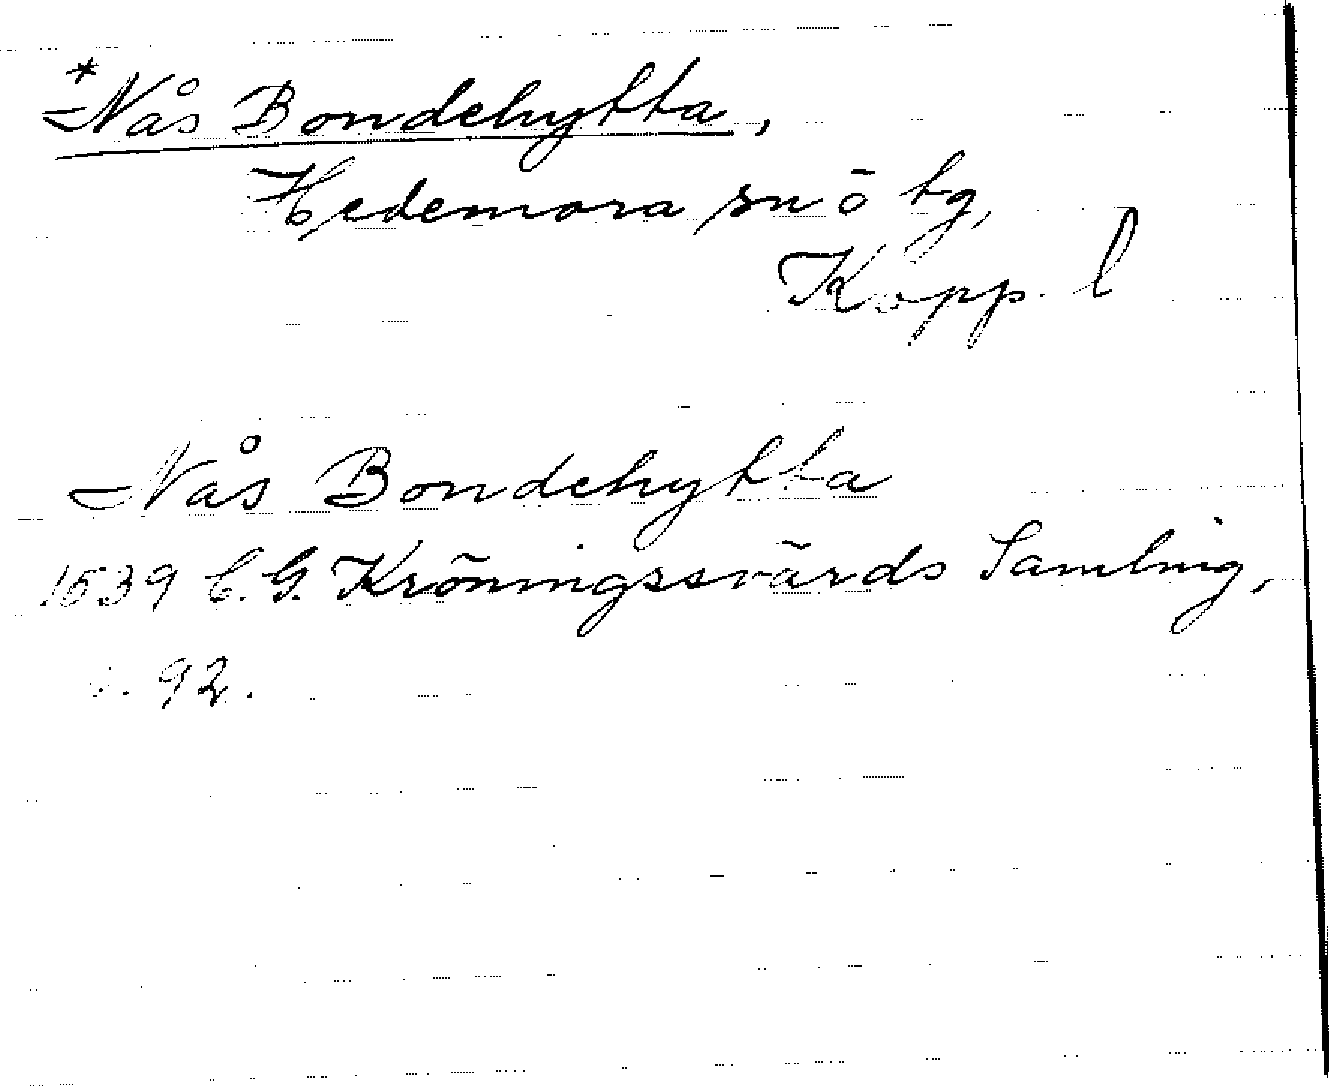 *Nås Bondehytta,
Hedemora sn o tg,
Kopp. l
Nås Bondehytta
1539 C. G. Kröningssvärds Samling,
92.